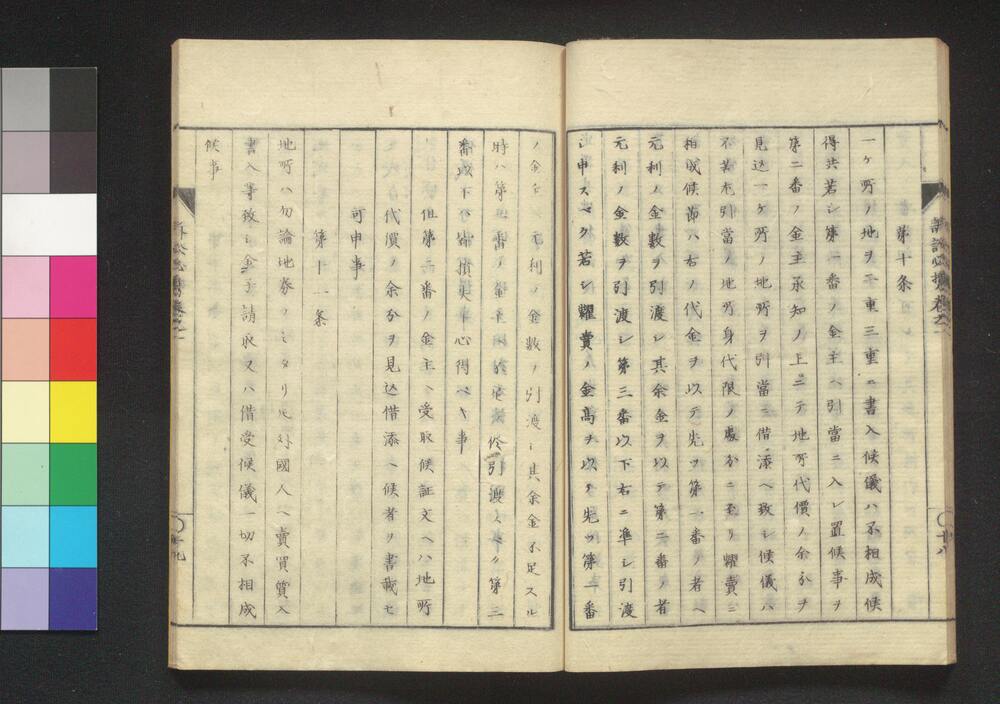 第十条
一ケ所ノ地ヲ二重三重ニ書入候儀ハ不相成候
得共若シ第一番ノ金主ヘ引當ニ入レ置候事ヲ
第二番ノ金主承知ノ上ニテ地所代價ノ余分ヲ
見込一ケ所ノ地所ヲ引當ニ借添ヘ致シ候儀ハ
不苦尤引當ノ地所身代限ノ處分ニ至リ糶賣ニ
相成候節ハ右ノ代金ヲ以テ先ツ第一番ノ者ヘ
元利ノ金數ヲ引渡シ其余金ヲ以テ第二番ノ者
元利ノ金數ヲ引渡シ第三番以下右ニ準シ引渡
シ申スベク若シ糶賣ノ金高ヲ以テ先ツ第一番
ノ金主ヘ元利ノ金數ノ引渡シ其余金不足スル
時ハ第二番ノ 引渡スベク第三
番以下ハ皆損失ト心得ベキ事
但第二番ノ金主ヘ受取候証文ヘハ地所
代價ノ余分ヲ見込借添ヘ候者ヲ書載セ
可申事
第十一条
地所ハ勿論地券ノミタリ圧外國人ヘ賣買質入
書入等致シ金子請取又ハ借受候儀一切不相成
候事
訴訟必携巻之一
廿八
訴訟必携巻之一
廿九